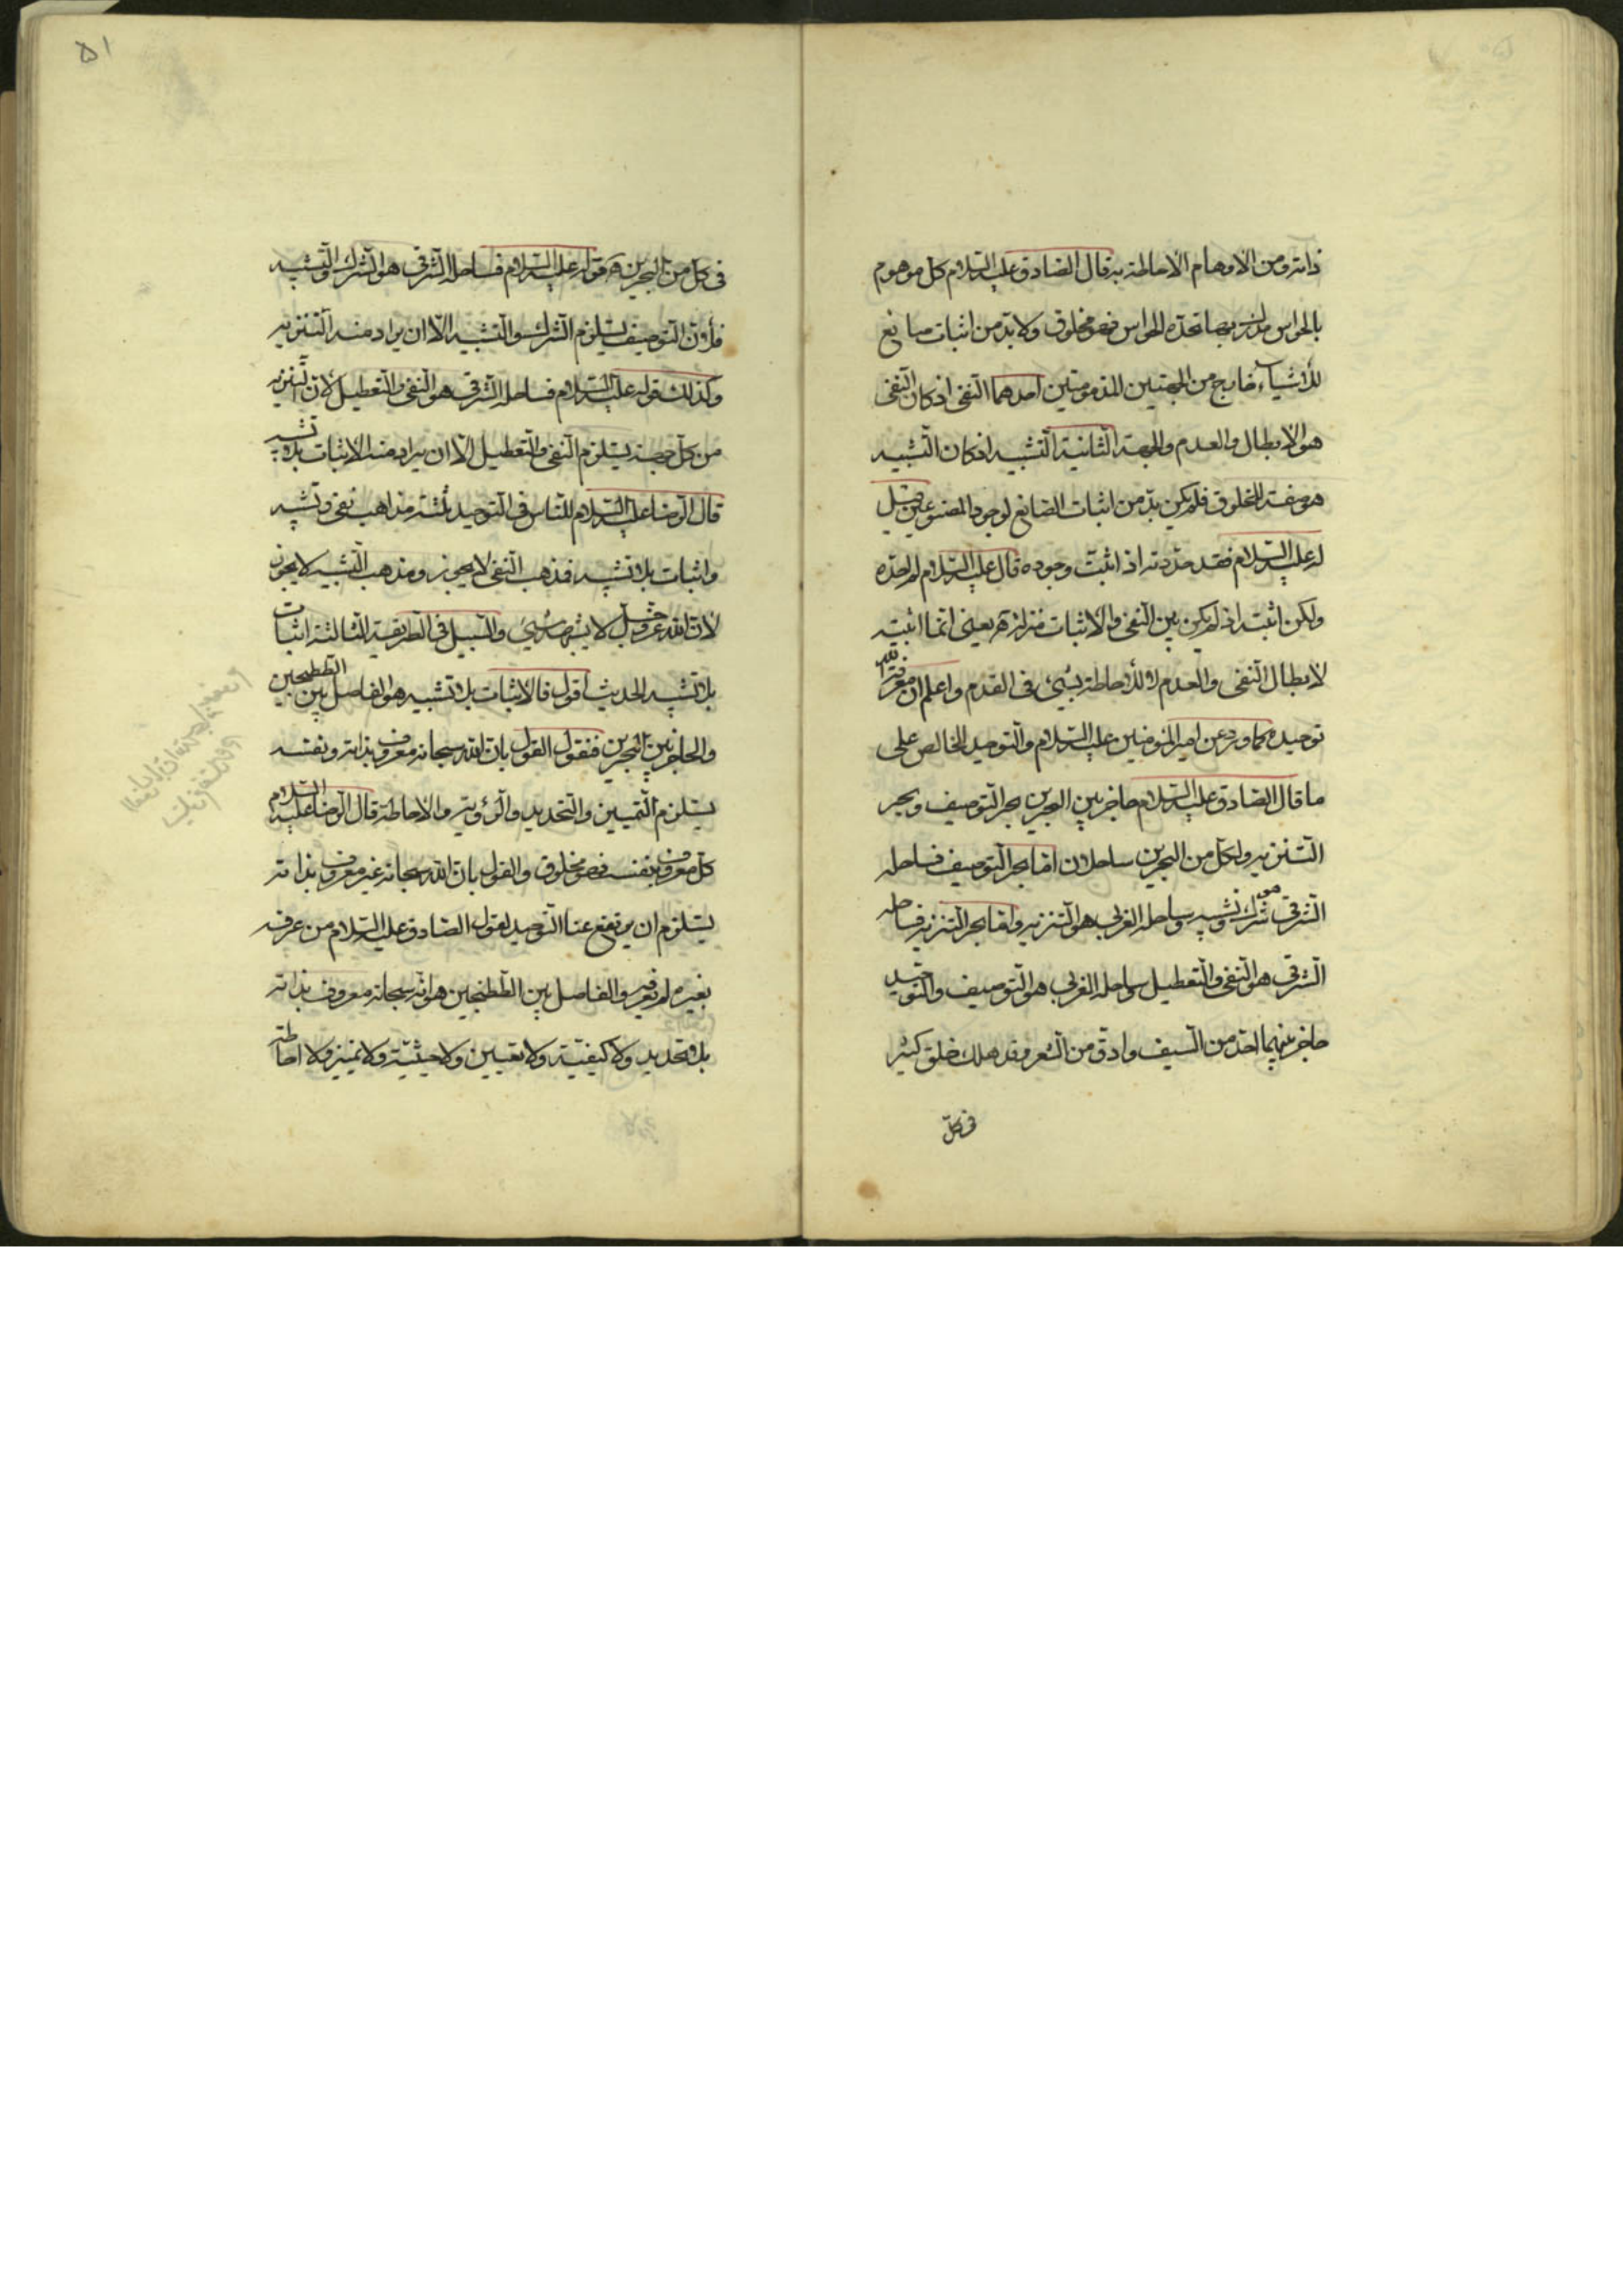 ذاته ومن الاوهام الاحاطة به قال الصادق عليه السلام كل موهوم
بالحواس مدرك مما تحده الحواس فهو مخلوق ولا بد من اثبات صانع
للأشياء خارج من الجهتين المذمومتين احدهما النفى اذ كان النفى
هو الابطال والعدم والجهة الثانية التشبيه اذ كان التشبيه
هو صفة المخلوق فلم يكن بد من اثبات الصانع لوجود المصنوعين قيل
له عليه السلام فقد حددته اذ اثبت وجوده قال عليه السلام لم احده
ولكن اثبته اذ لم يكن بين النفى والاثبات منزلة يعنى انما اثبته
لابطال النفى والعدم لا للأحاطة بشىء فى القدم واعلم ان معرفة الله
توحيده كما ورد عن امير المؤمنين عليه السلام والتوحيد الخالص على
ما قال الصادق عليه السلام حاجز بين البحرين بحر التوصيف وبحر
التنزيه ولكل من البحرين ساحلان اما بحر التوصيف فساحله
الشرقى هو شرك وتشبيه وساحله الغربى هو التنزيه واما بحر التنزيه فساحله
الشرقى هو النفى والتعطيل وساحله الغربى هو التوصيف والتوحيد
حاجز بينهما احد من السيف وادق من الشعر وقد هلك خلق كثير
فى كل
٥١
فى كل من البحرين قوله عليه السلام فساحله الشرقى هو الشرك والتشبيه
فلأن التوصيف يستلزم الشرك والتشبيه الا ان يراد منه التنزيه
وكذلك قوله عليه السلام فساحله الشرقى هو النفى والتعطيل لان التنزيه
من كل جهة يستلزم النفى والتعطيل الا ان يراد منه الاثبات بلا تشبيه
قال الرضا عليه السلام للناس فى التوحيد ثلثة مذاهب نفى وتشبيه
واثبات بلا تشبيه فمذهب النفى لا يجوز ومذهب التشبيه لا يجوز
لان الله عز وجل لا يشبهه شىء والسبيل فى الطريقة الثالثة اثبات
بلا تشبيه الحديث اقول فالاثبات بلا تشبيه هو الفاصل بين الطتنجين
والحاجز بين البحرين فنقول القول بان الله سبحانه معروف بذاته ونفسه
يستلزم التميين والتحديد والرؤية والاحاطة قال الرضا عليه السلام
كل معروف بنفسه فهو مخلوق والقول بان الله سبحانه غير معروف بذاته
يستلزم ان يرتفع عنا التوحيد لقول الصادق عليه السلام من عرفه
بغيره لم يعرفه والفاصل بين الطتنجين هو انه سبحانه معروف بذاته
بلا تحديد ولا كيفية ولا تعيين ولا حيثية ولا تميز ولا احاطة